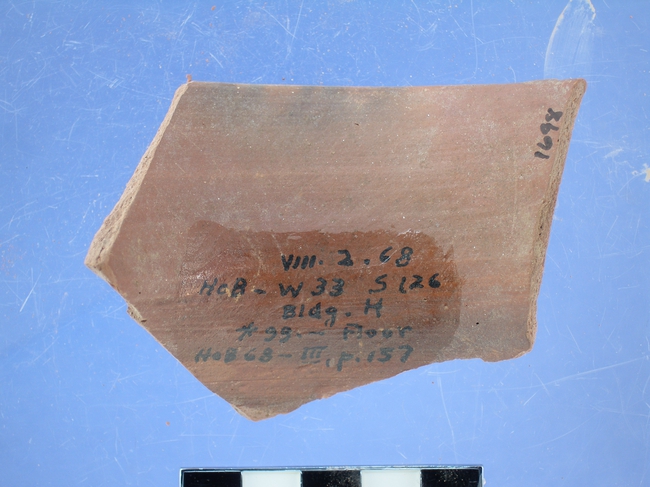 VIII. 2. 68
HoB - W 33 S 126
Bldg. H
*99. - Floor
HoB 68 - III, p. 157
1698